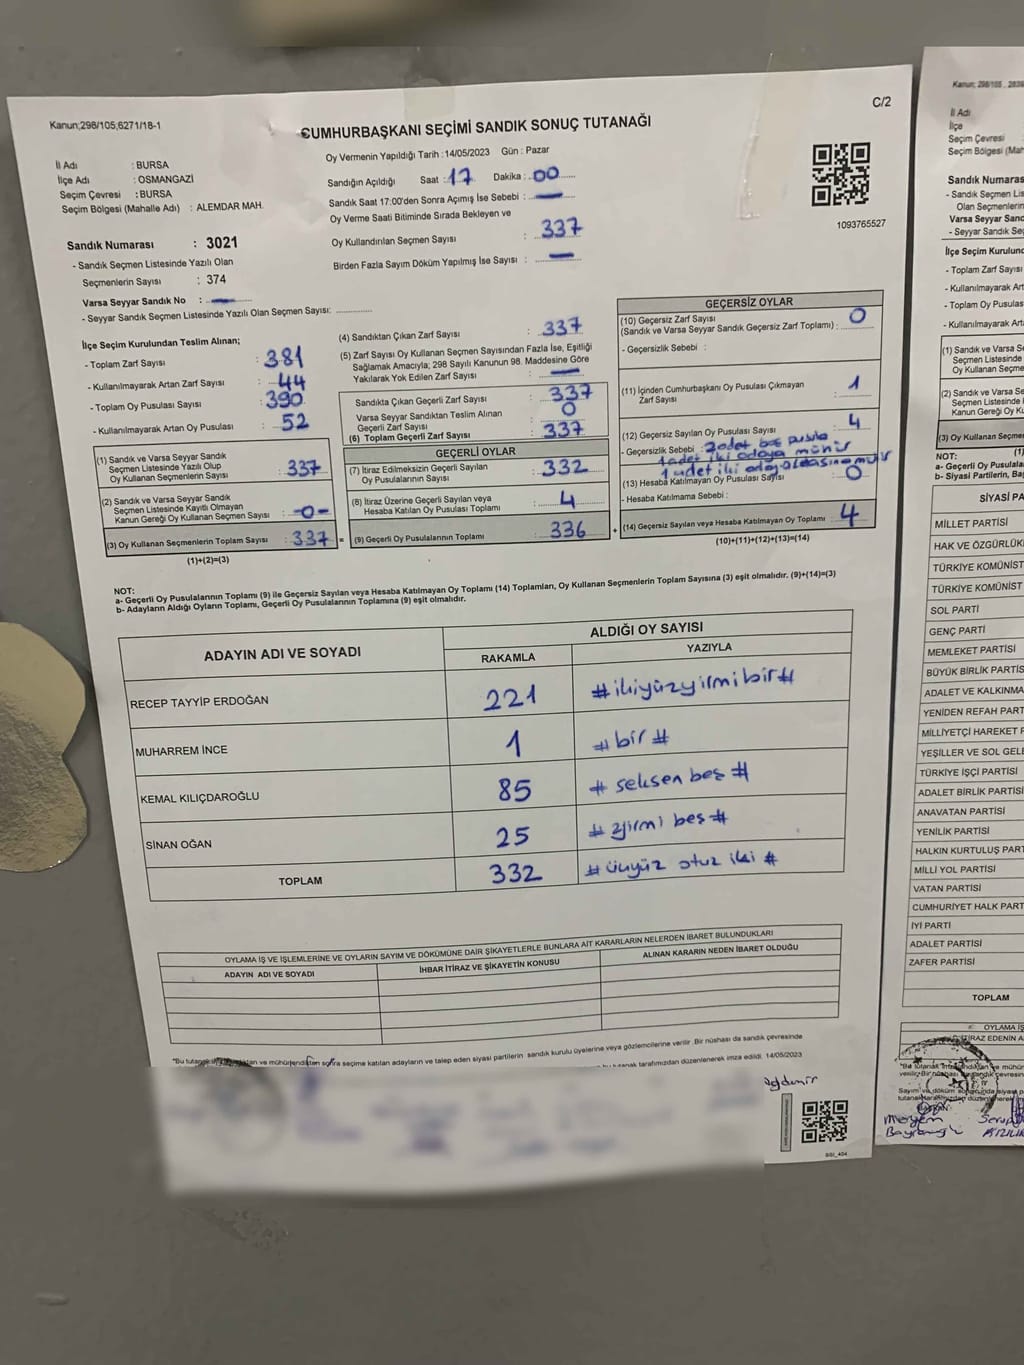 Kanun;298/105;6271/18-1
C/2
CUMHURBAŞKANI SEÇİMİ SANDIK SONUÇ TUTANAĞI
İl Adı : BURSA
İlçe Adı : OSMANGAZİ
Seçim Çevresi : BURSA
Seçim Bölgesi (Mahalle Adı) : ALEMDAR MAH.
Oy Vermenin Yapıldığı Tarih :14/05/2023 Gün : Pazar
Sandığın Açıldığı Saat : 17 Dakika : 00
Sandık Saat 17:00'den Sonra Açımış İse Sebebi : —
Oy Verme Saati Bitiminde Sırada Bekleyen ve
Oy Kullandırılan Seçmen Sayısı : 337
Birden Fazla Sayım Döküm Yapılmış İse Sayısı : —
1093765527
Sandık Numarası : 3021
- Sandık Seçmen Listesinde Yazılı Olan
Seçmenlerin Sayısı : 374
Varsa Seyyar Sandık No : —
- Seyyar Sandık Seçmen Listesinde Yazılı Olan Seçmen Sayısı:
İlçe Seçim Kurulundan Teslim Alınan;
- Toplam Zarf Sayısı : 381
- Kullanılmayarak Artan Zarf Sayısı : 44
- Toplam Oy Pusulası Sayısı : 390
- Kullanılmayarak Artan Oy Pusulası : 52
(1) Sandık ve Varsa Seyyar Sandık
Seçmen Listesinde Yazılı Olup
Oy Kullanan Seçmenlerin Sayısı : 337
(2) Sandık ve Varsa Seyyar Sandık
Seçmen Listesinde Kayıtlı Olmayan
Kanun Gereği Oy Kullanan Seçmen Sayısı : -0-
(3) Oy Kullanan Seçmenlerin Toplam Sayısı : 337 =
(1)+(2)=(3)
(4) Sandıktan Çıkan Zarf Sayısı : 337
(5) Zarf Sayısı Oy Kullanan Seçmen Sayısından Fazla İse, Eşitliği
Sağlamak Amacıyla; 298 Sayılı Kanunun 98. Maddesine Göre
Yakılarak Yok Edilen Zarf Sayısı : —
Sandıkta Çıkan Geçerli Zarf Sayısı : 337
Varsa Seyyar Sandıktan Teslim Alınan
Geçerli Zarf Sayısı : 0
(6) Toplam Geçerli Zarf Sayısı : 337
GEÇERLİ OYLAR
(7) İtiraz Edilmeksizin Geçerli Sayılan
Oy Pusulasının Sayısı : 332
(8) İtiraz Üzerine Geçerli Sayılan veya
Hesaba Katılan Oy Pusulası Toplamı : 4
(9) Geçerli Oy Pusulalarının Toplamı : 336 +
GEÇERSİZ OYLAR
(10) Geçersiz Zarf Sayısı
(Sandık ve Varsa Seyyar Sandık Geçersiz Zarf Toplamı) : 0
- Geçersizlik Sebebi :
(11) İçinden Cumhurbaşkanı Oy Pusulası Çıkmayan
Zarf Sayısı : 1
(12) Geçersiz Sayılan Oy Pusulası Sayısı : 4
- Geçersizlik Sebebi : 2 adet boş pusula
1 adet iki adaya mühür
1 adet iki aday arasına mühür
(13) Hesaba Katılmayan Oy Pusulası Sayısı : 0
- Hesaba Katılmama Sebebi :
(14) Geçersiz Sayılan veya Hesaba Katılmayan Oy Toplamı : 4
(10)+(11)+(12)+(13)=(14)
NOT:
a- Geçerli Oy Pusulalarının Toplamı (9) ile Geçersiz Sayılan veya Hesaba Katılmayan Oy Toplamı (14) Toplamları, Oy Kullanan Seçmenlerin Toplam Sayısına (3) eşit olmalıdır. (9)+(14)=(3)
b- Adayların Aldığı Oyların Toplamı, Geçerli Oy Pusulalarının Toplamına (9) eşit olmalıdır.
ADAYIN ADI VE SOYADI ALDIĞI OY SAYISI
RAKAMLA YAZIYLA
RECEP TAYYİP ERDOĞAN 221 #ikiyüzyirmibir#
MUHARREM İNCE 1 #bir#
KEMAL KILIÇDAROĞLU 85 #seksen beş#
SİNAN OĞAN 25 #yirmi beş#
TOPLAM 332 #üçyüz otuz iki#
OYLAMA İŞ VE İŞLEMLERİNE VE OYLARIN SAYIM VE DÖKÜMÜNE DAİR ŞİKAYETLERLE BUNLARA AİT KARARLARIN NELERDEN İBARET BULUNDUKLARI
ADAYIN ADI VE SOYADI İHBAR İTİRAZ VE ŞİKAYETİN KONUSU ALINAN KARARIN NEDEN İBARET OLDUĞU
sonra seçime katılan adayların ve talep eden siyasi partilerin sandık kurulu üyelerine veya gözlemcilerine verilir. Bir nüshası da sandık çevresinde
tutanak tarafımızdan düzenlenerek imza edildi. 14/05/2023
Kanun; 298/105
İl Adı
İlçe
Seçim Çevresi
Seçim Bölgesi (Mah
Sandık Numaras
- Sandık Seçmen Lis
Olan Seçmenlerin
Varsa Seyyar San
- Seyyar Sandık Seç
İlçe Seçim Kurulund
- Toplam Zarf Sayısı
- Kullanılmayarak Art
- Toplam Oy Pusulas
- Kullanılmayarak Arta
(1) Sandık ve Varsa Se
Seçmen Listesinde
Oy Kullanan Seçme
(2) Sandık ve Varsa Se
Seçmen Listesinde
Kanun Gereği Oy Ku
(3) Oy Kullanan Seçme
NOT:
a- Geçerli Oy Pusulala
b- Siyasi Partilerin, Ba
SİYASİ PA
MİLLET PARTİSİ
HAK VE ÖZGÜRLÜK
TÜRKİYE KOMÜNİST
TÜRKİYE KOMÜNİST
SOL PARTİ
GENÇ PARTİ
MEMLEKET PARTİSİ
BÜYÜK BİRLİK PARTİS
ADALET VE KALKINMA
YENİDEN REFAH PART
MİLLİYETÇİ HAREKET P
YEŞİLLER VE SOL GELE
TÜRKİYE İŞÇİ PARTİSİ
ADALET BİRLİK PARTİSİ
ANAVATAN PARTİSİ
YENİLİK PARTİSİ
HALKIN KURTULUŞ PART
MİLLİ YOL PARTİSİ
VATAN PARTİSİ
CUMHURİYET HALK PART
İYİ PARTİ
ADALET PARTİSİ
ZAFER PARTİSİ
TOPLAM
OYLAMA İŞ
İTİRAZ EDENİN A
Meryem